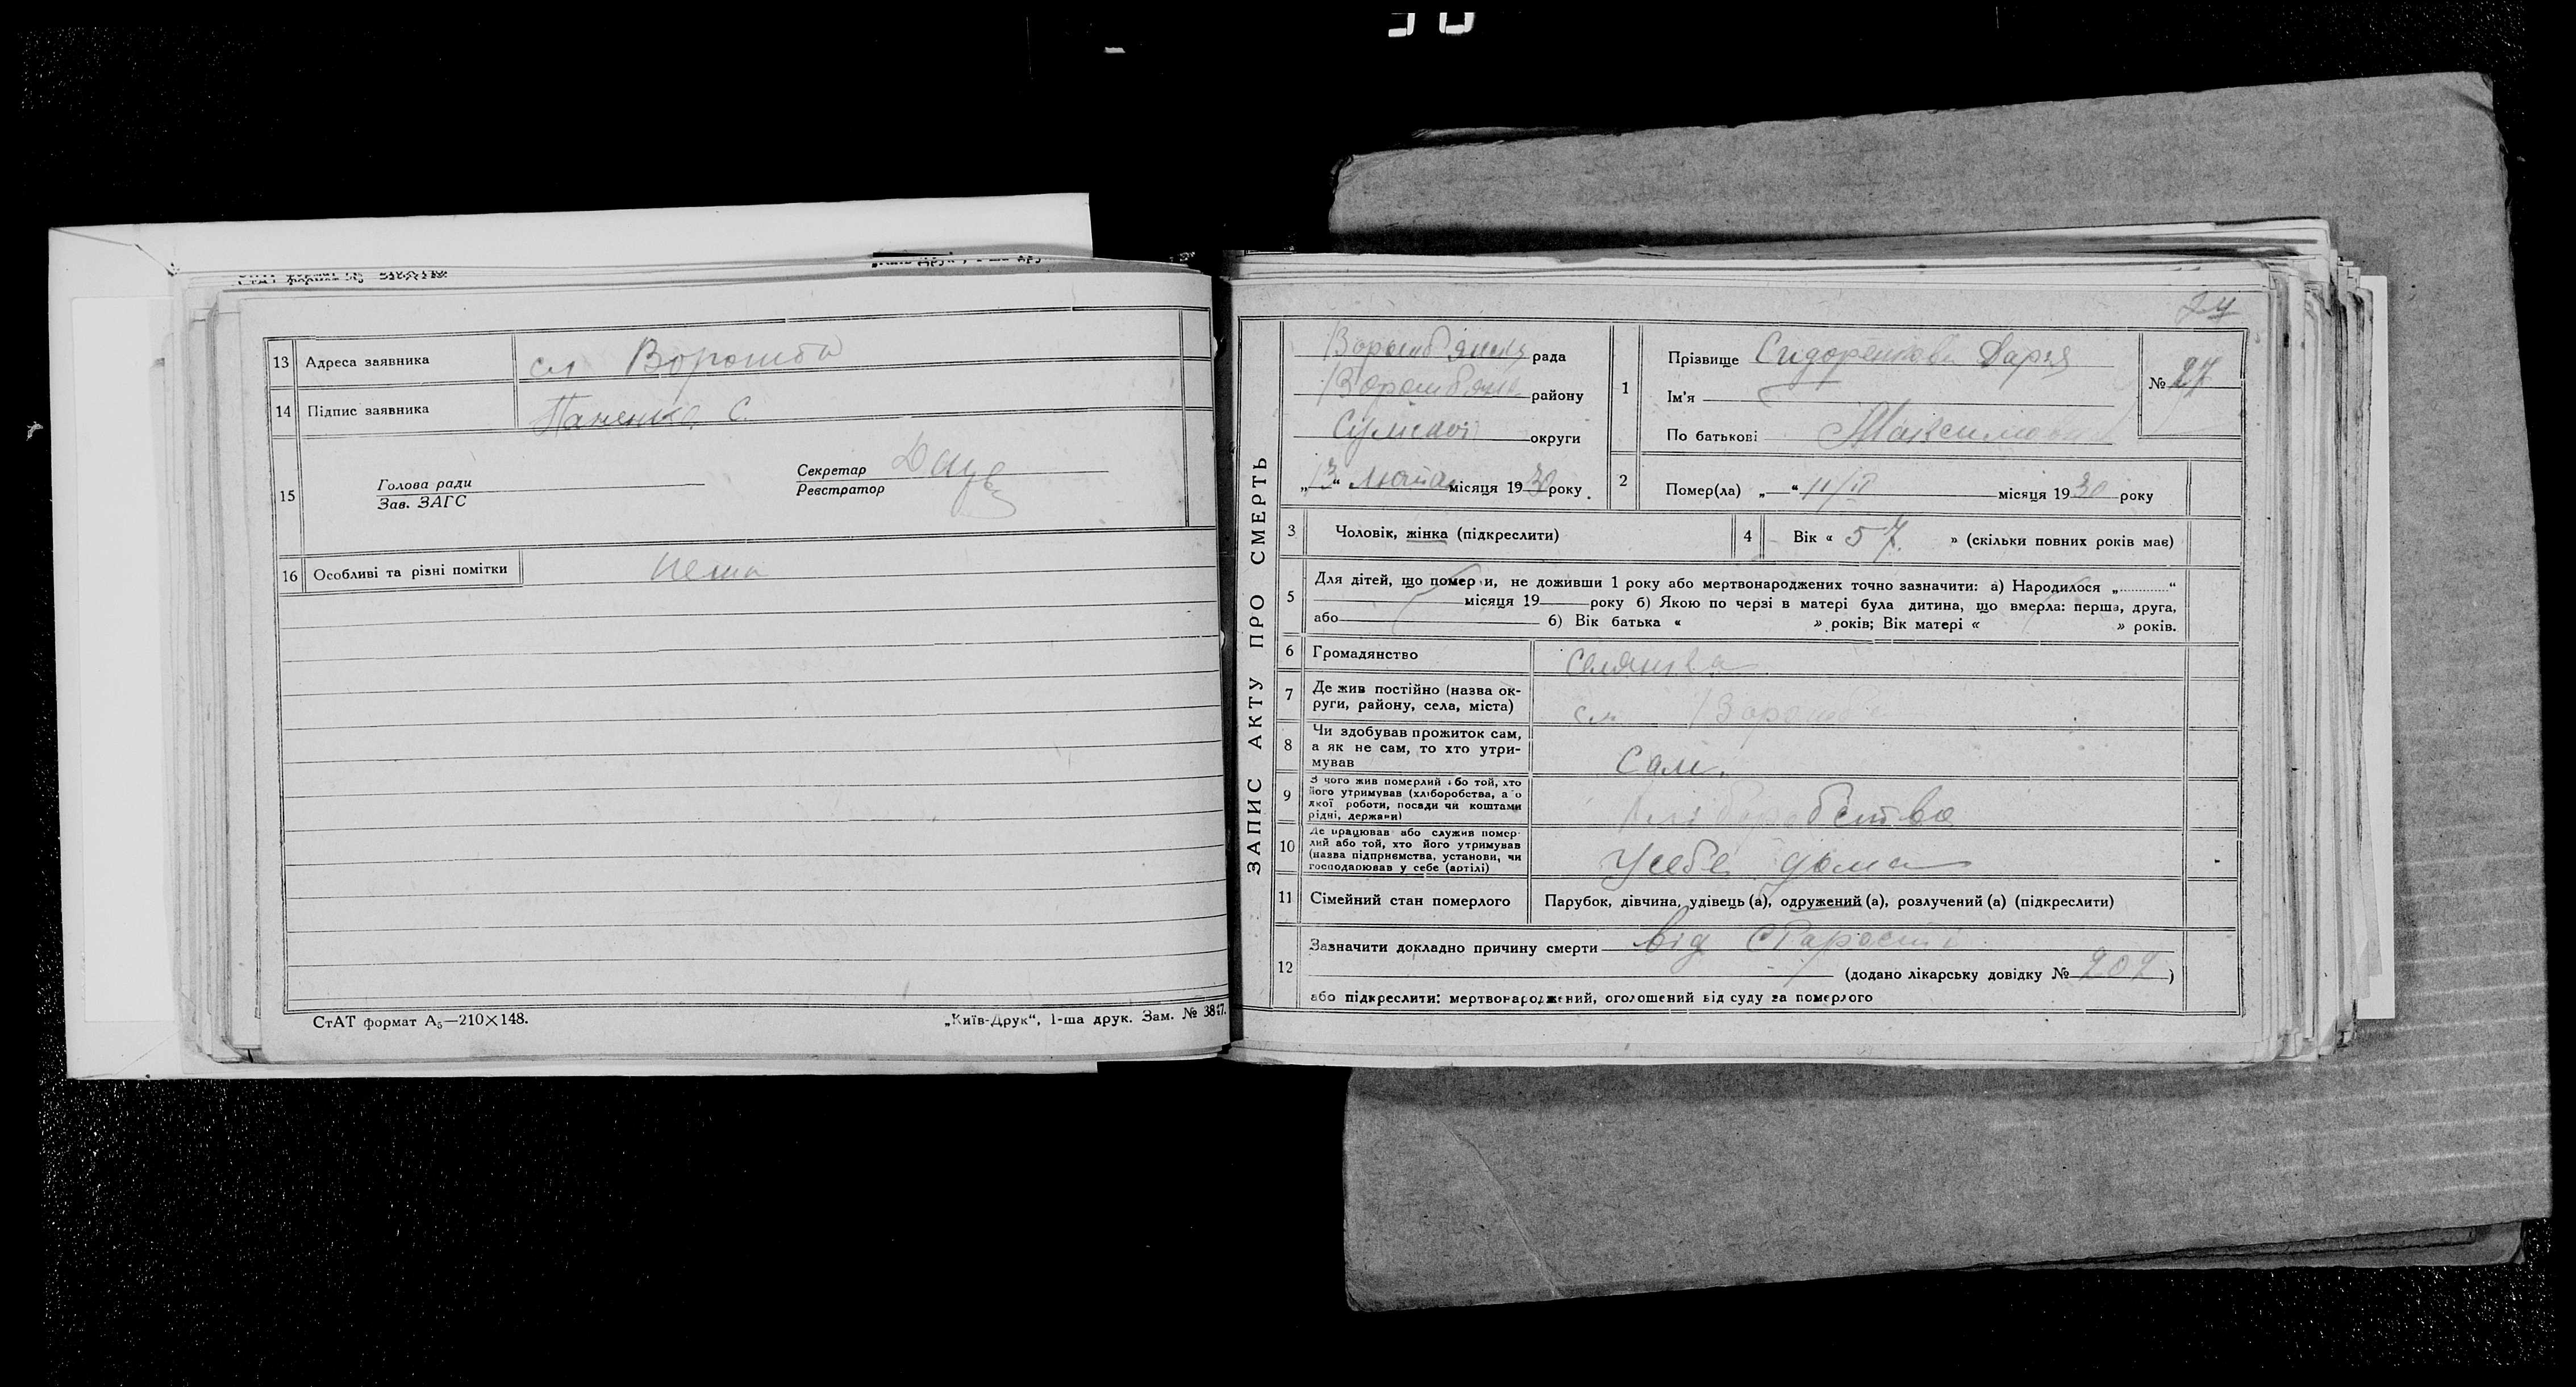 13 Адреса заявника сл Ворожба
14 Підпис заявника Паненко С.
15
Голова ради
Зав. ЗАГС
Секретар
Реєстратор
16 Особливі та різні помітки нема
СтАТ формат А₅—210×148.
„Київ-Друк“, 1-ша друк. Зам. № 3847.
24
ЗАПИС АКТУ ПРО СМЕРТЬ
рада
району
Сумської округи
„13“ Лютая місяця 1930 року.
1 Прізвище Сидоренкова Дарія
Ім'я
По батькові
№ 27
2 Помер(ла) „—“ 11/II місяця 1930 року
3 Чоловік, жінка (підкреслити)
4 Вік « 57. » (скільки повних років має)
5 Для дітей, що померли, не доживши 1 року або мертвонароджених точно зазначити: а) Народилося „............“
місяця 19 року б) Якою по черзі в матері була дитина, що вмерла: перша, друга,
або б) Вік батька « » років; Вік матері « » років.
6 Громадянство
7 Де жив постійно (назва ок-
руги, району, села, міста) сл Ворожба
8 Чи здобував прожиток сам,
а як не сам, то хто утри-
мував Сам.
9 З чого жив померлий або той, хто
його утримував (хліборобства, або
якої роботи, посади чи коштами
рідні, держави)
10 Де працював або служив помер-
лий або той, хто його утримував
(назва підприємства, установи, чи
господарював у себе (артілі) Усебе дома
11 Сімейний стан померлого Парубок, дівчина, удівець (а), одружений (а), розлучений (а) (підкреслити)
12 Зазначити докладно причину смерти від Старости
(додано лікарську довідку № 207)
або підкреслити: мертвонароджений, оголошений від суду за померлого